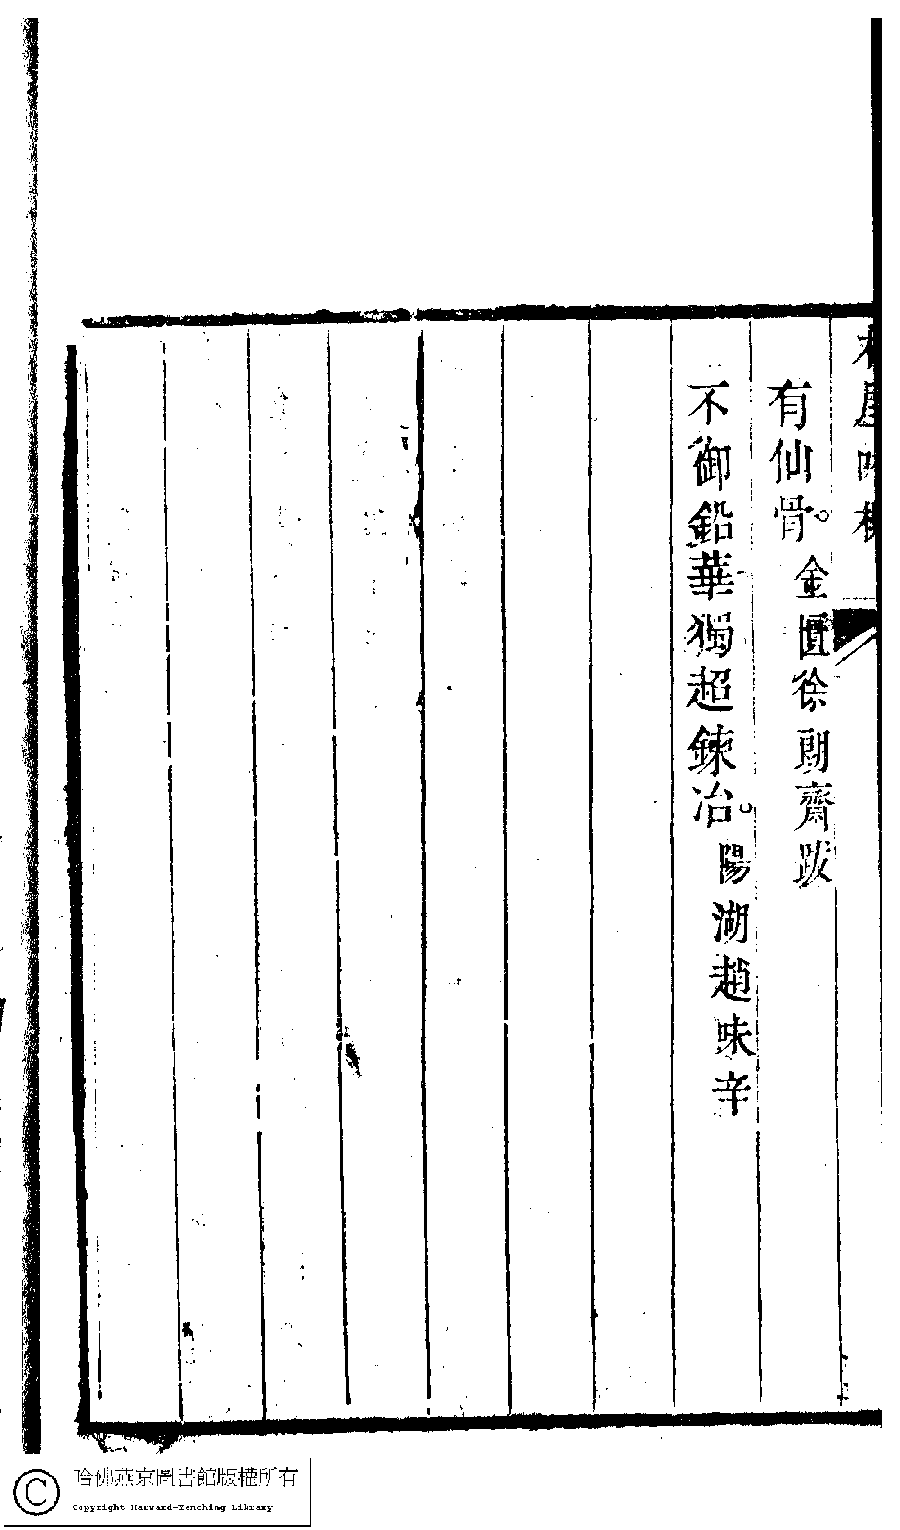 有仙骨。金匱徐朗齋跋
不御鉛華獨超鍊冶。陽湖趙味辛
哈佛燕京圖書館版權所有
Copyright Harvard-Yenching Library